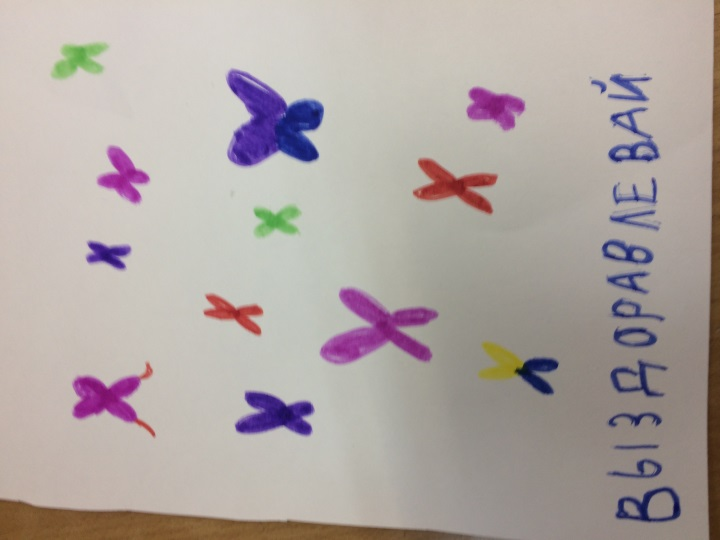 ВЫЗДОРАВЛЕВАЙ